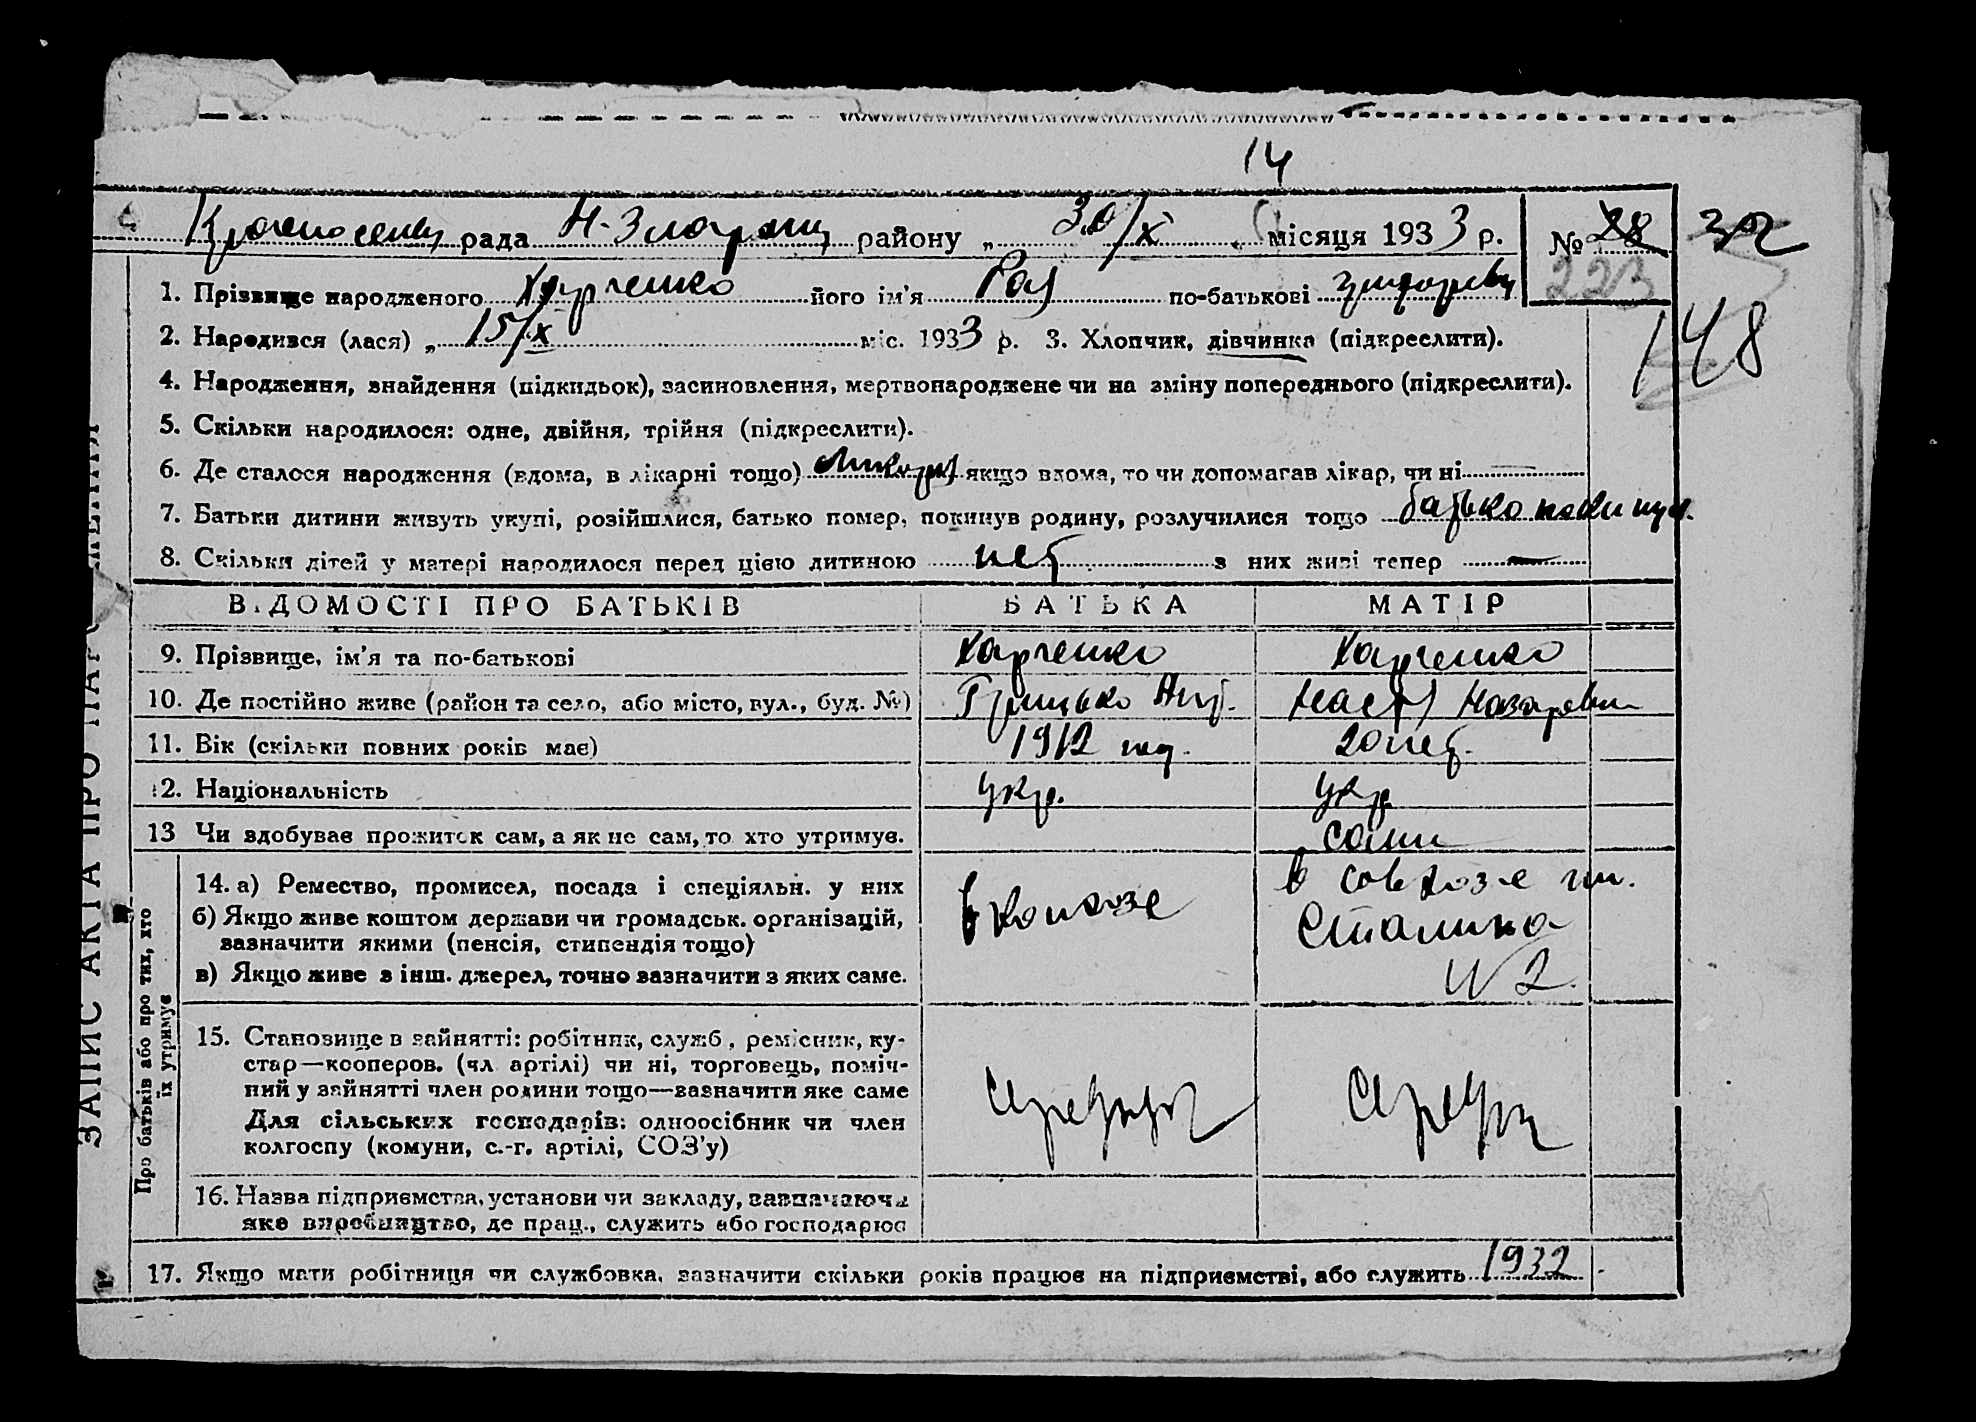 14
рада Н-Златопіль району „ 30/X місяця 1933 р. № 28 32
223
1. Прізвище народженого Харченко його ім'я Рая по-батькові
148
2. Народився (лася) „ 15/X міс. 1933 р. 3. Хлопчик, дівчинка (підкреслити).
4. Народження, знайдення (підкидьок), засиновлення, мертвонароджене чи на зміну попереднього (підкреслити).
5. Скільки народилося: одне, двійня, трійня (підкреслити).
6. Де сталося народження (вдома, в лікарні тощо) якщо вдома, то чи допомагав лікар, чи ні
7. Батьки дитини живуть укупі, розійшлися, батько помер, покинув родину, розлучилися тощо батько покинул.
8. Скільки дітей у матері народилося перед цією дитиною нет з них живі тепер —
ВІДОМОСТІ ПРО БАТЬКІВ БАТЬКА МАТІР
9. Прізвище, ім'я та по-батькові Харченко Харченко
10. Де постійно живе (район та село, або місто, вул., буд. №) Грицько
11. Вік (скільки повних років має) 1912 год. 20 лет.
12. Національність укр. укр.
13 Чи здобуває прожиток сам, а як не сам, то хто утримує. сами
14. а) Ремество, промисел, посада і спеціяльн. у них в колхозе в совхозе им.
б) Якщо живе коштом держави чи громадськ. організацій, Сталина
зазначити якими (пенсія, стипендія тощо) N 2.
в) Якщо живе з інш. джерел, точно зазначити з яких саме.
15. Становище в зайнятті: робітник, служб., ремісник, ку-
стар—кооперов. (чл. артілі) чи ні, торговець, поміч-
ний у зайнятті член родини тощо—зазначити яке саме
Для сільських господарів: одноосібник чи член
колгоспу (комуни, с.-г. артілі, СОЗ'у)
16. Назва підприємства, установи чи закладу, зазначаючи
яке виробництво, де прац., служить або господарює
17. Якщо мати робітниця чи службовка, зазначити скільки років працює на підприємстві, або служить 1932
ЗАПИС АКТА ПРО
Про батьків або про тих, хто
їх утримує